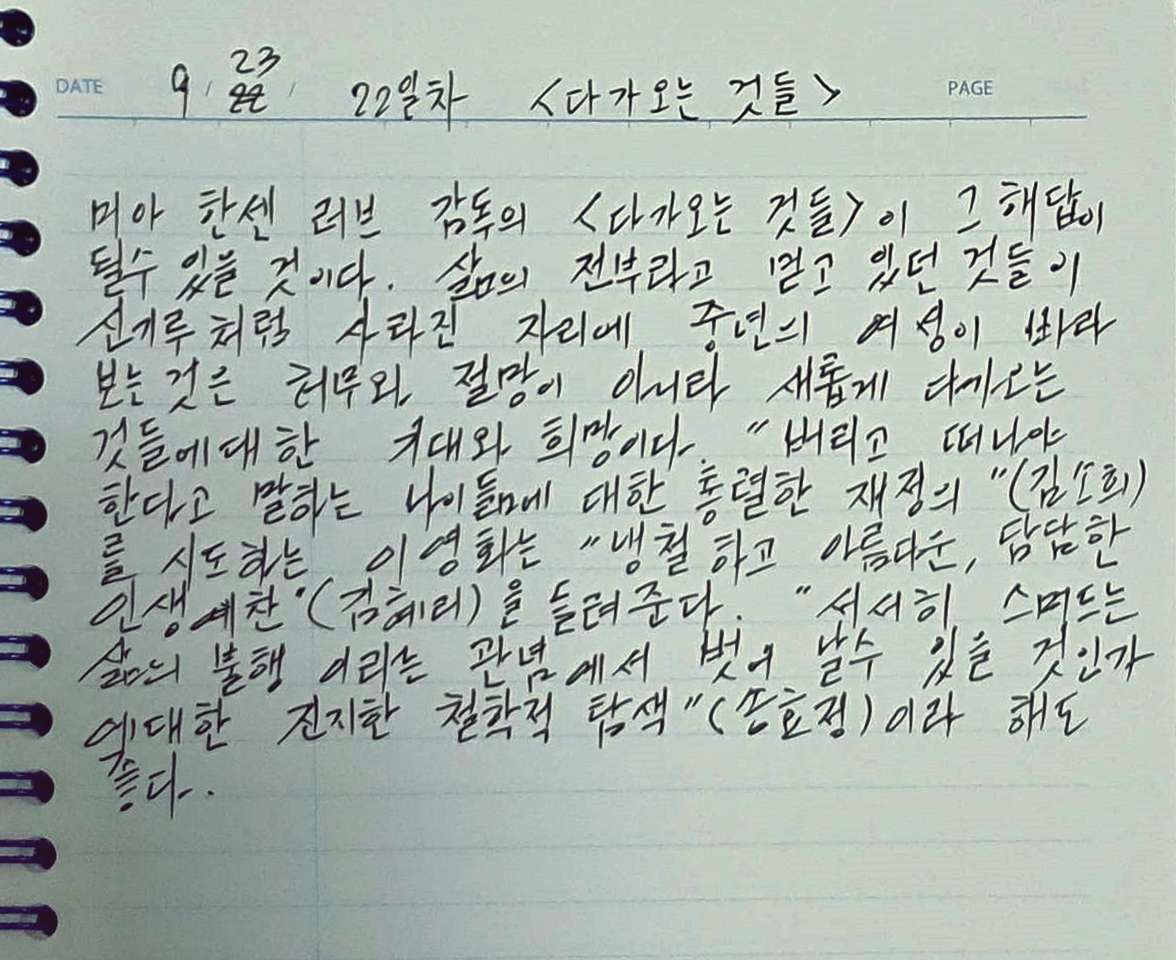 DATE 9 / 23 / 22일차 <다가오는 것들> PAGE
미아 한센 러브 감독의 <다가오는 것들>이 그 해답이
될수 있을 것이다. 삶의 전부라고 믿고 있던 것들이
신기루처럼 사라진 자리에 중년의 여성이 바라
보는 것은 허무와 절망이 아니라 새롭게 다가오는
것들에 대한 기대와 희망이다. "버티고 떠나야
한다고 말하는 나이듦에 대한 통렬한 재정의"(김소희)
를 시도하는 이 영화는 "냉철하고 아름다운, 담담한
인생예찬"(김혜리)을 들려준다. "서서히 스며드는
삶의 불행 이라는 관념에서 벗어 날수 있을 것인가
에대한 진지한 철학적 탐색"(송효정)이라 해도
좋다.